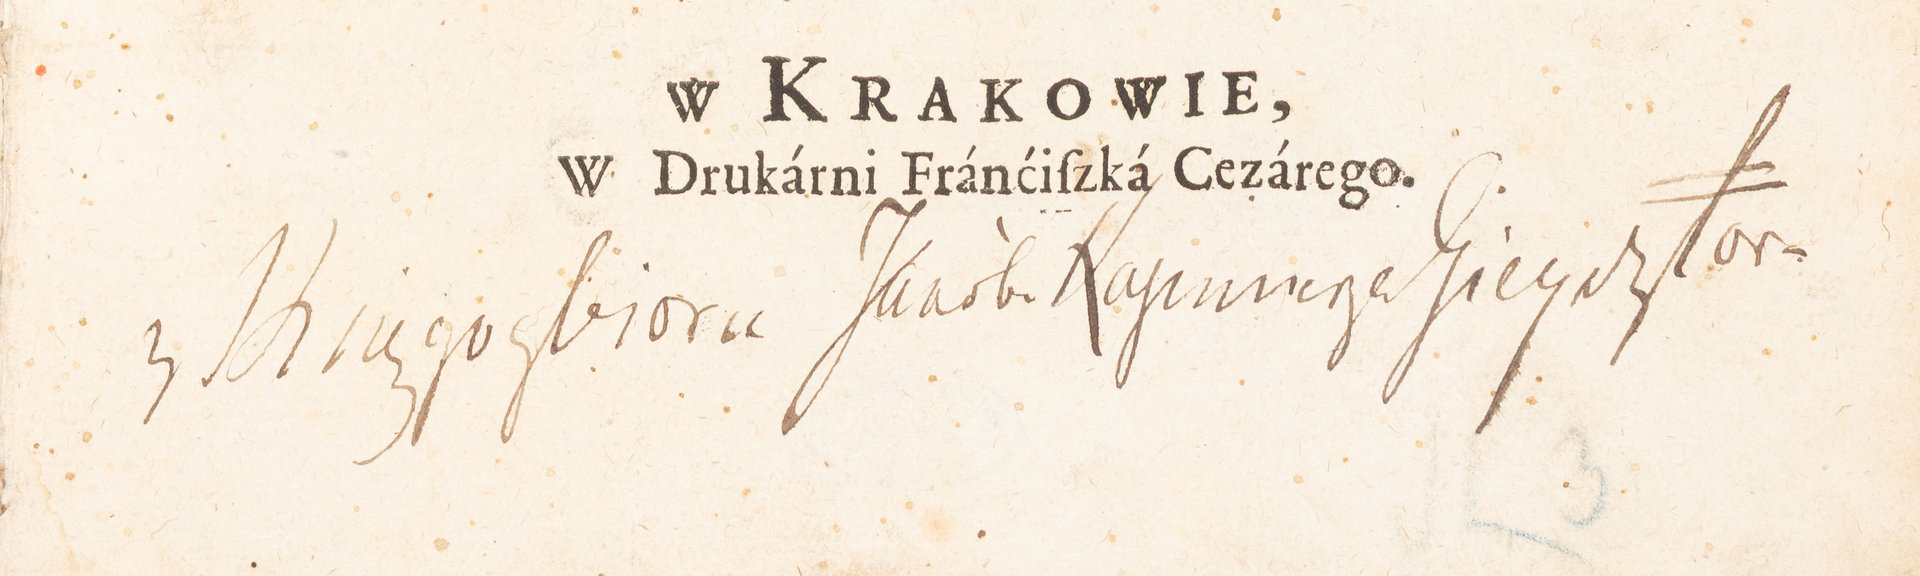 w KRAKOWIE,
W Drukárni Fránćiſzká Cezárego.
z Xięgozbioru Jakób Kazimierza Gieysztor
3